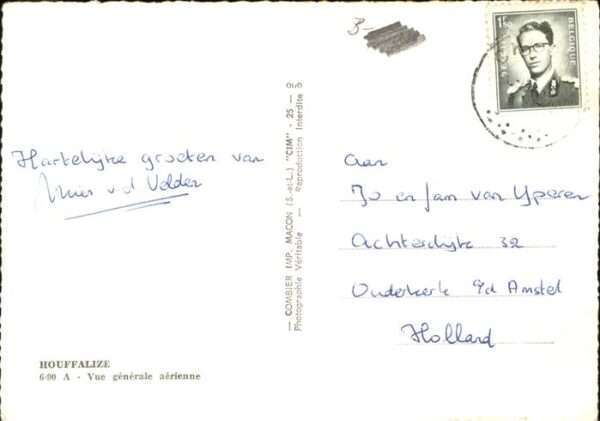 3-
1F50
BELGIQUE
Hartelijke groeten van
v.d Velden
HOUFFALIZE
6-90 A - Vue générale aérienne
— COMBIER IMP. MACON (S.-et-L.) "CIM" - 25 —
Photographie Véritable — Reproduction Interdite
aan
Jo en Jam van Yperen
Achterdijk 32
Ouderkerk a/d Amstel
Holland